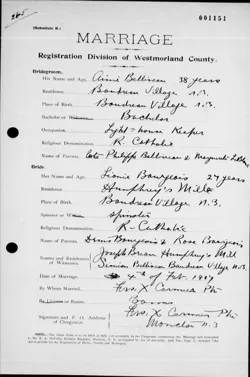 (Schedule B)
601151
MARRIAGE
Registration Division of Westmorland County.
Bridegroom,
His Name and Age, Aimé Belliveau 38 years
Residence Boudreau Village N.B.
Place of Birth Boudreau Village N.B.
Bachelor or Widower Bachelor
Occupation Light-house Keeper
Religious Denomination R. Catholic
Name of Parents, Philippe Belliveau & Marguerite
Bride.
Her Name and Age, Bourgeois 27 years
Residence Humphrey's Mills
Place of Birth Boudreau Village N.B.
Spinster or Widow spinster
Religious Denomination R-Catholic
Name of Parents, Denis Bourgeois & Rose Bourgeois
Names and Residence of Witnesses Joseph Humphrey's Mill
Simeon Belliveau Boudreau Village N.B.
Date of Marriage 4th of Feb. 1907
By Whom Married, Frs. X. Cormier Ptr
By License or Banns, Banns
Signature and P. O. Address of Clergyman, Frs. X Cormier Ptr
Moncton N.B